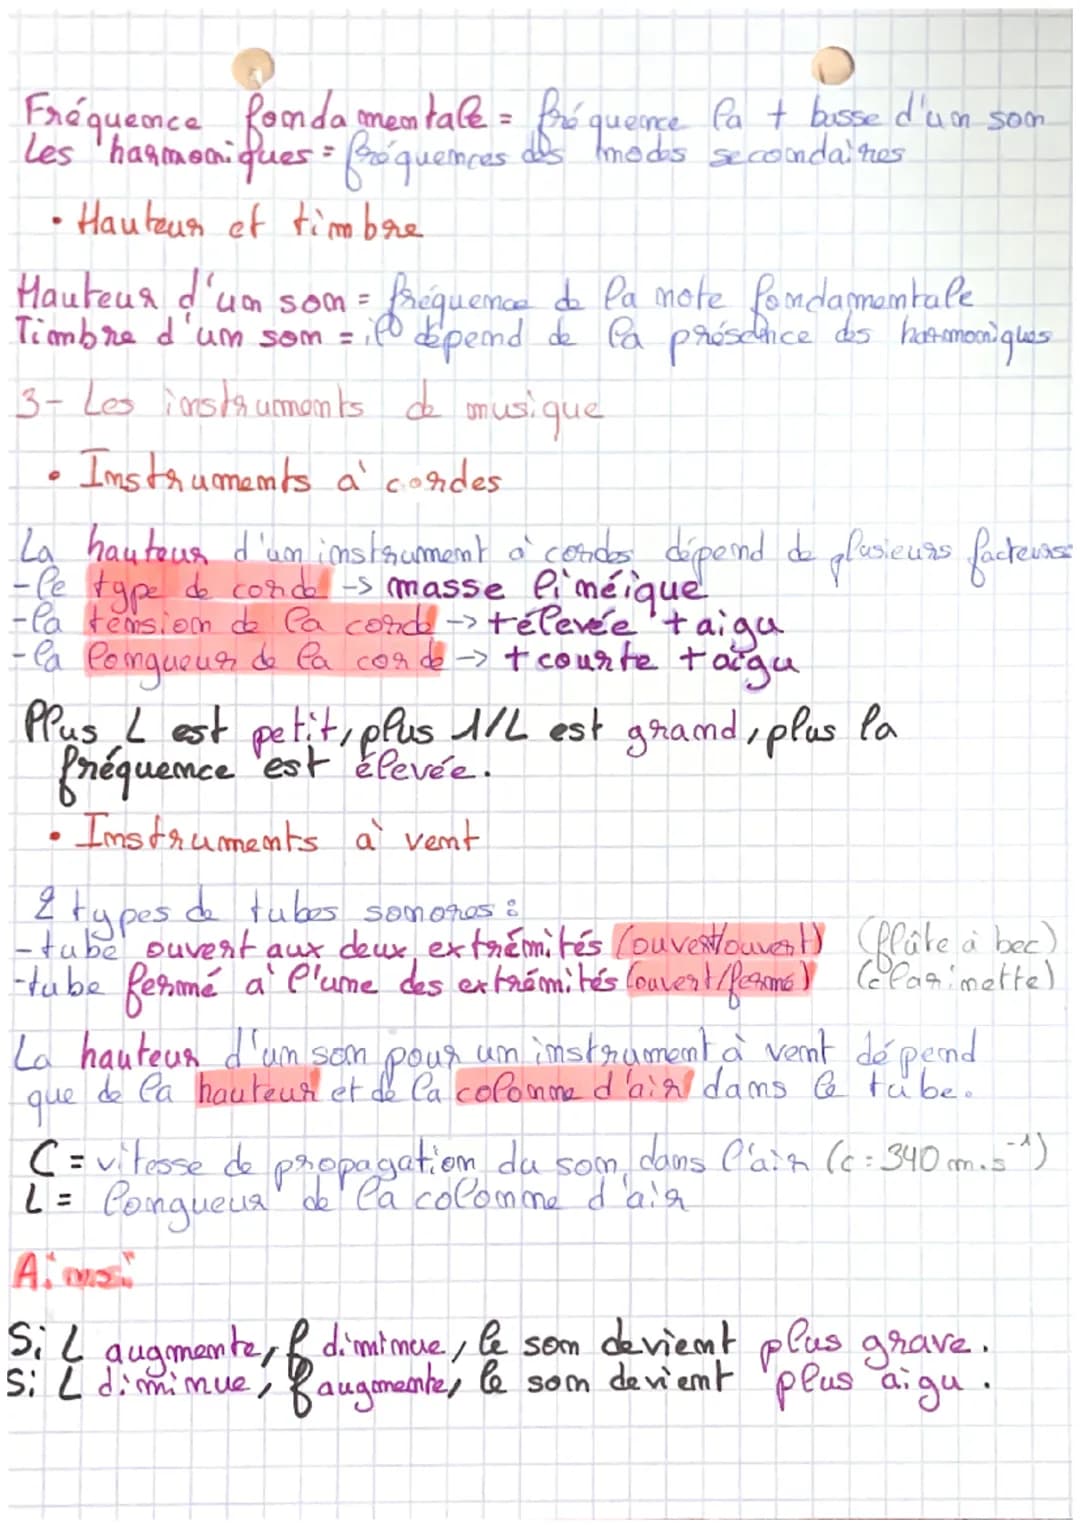 Fréquence fondamentale = fréquence la + basse d'un son
Les harmoniques = fréquences des modes secondaires
• Hauteur et timbre
Hauteur d'un son = fréquence de la note fondamentale
Timbre d'un son = il dépend de la présence des harmoniques
3- Les instruments de musique
• Instruments à cordes
La hauteur d'un instrument à cordes dépend de plusieurs facteurs
-le type de corde -> masse linéique
-la tension de la corde -> + élevée + aigu
-la longueur de la corde -> + courte + aigu
Plus L est petit, plus 1/L est grand, plus la
fréquence est élevée.
• Instruments à vent
2 types de tubes sonores :
-tube ouvert aux deux extrémités (ouvert/ouvert) (flûte à bec)
-tube fermé à l'une des extrémités (ouvert/fermé) (clarinette)
La hauteur d'un son pour un instrument à vent dépend
que de la hauteur et de la colonne d'air dans le tube.
C = vitesse de propagation du son dans l'air (c = 340 m.s⁻¹)
L = longueur de la colonne d'air
Ainsi
Si L augmente, f diminue, le son devient plus grave.
Si L diminue, f augmente, le son devient plus aigu.